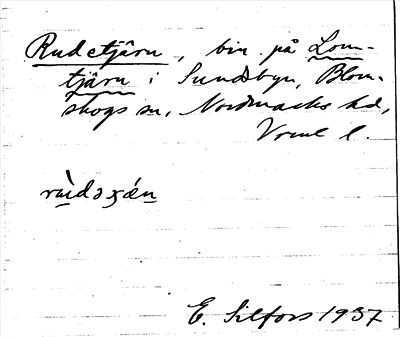 Rudetjärn, bin. på Lom-
tjärn i Sundsbyn, Blom-
skogs sn, Nordmarks hd,
Vrml l.
rùdəɟǽn
E. Silfors 1937